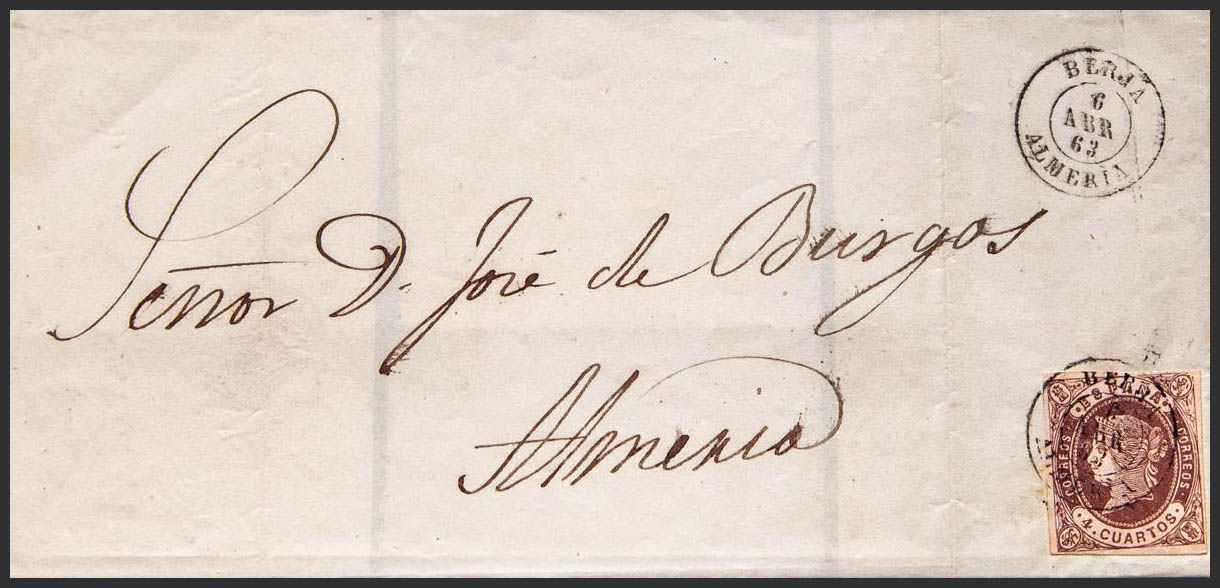 BERJA
6
ABR
63
ALMERÌA
Señor D. José de Burgos
Almeria
BERJA
ABR
ESPAÑA
CORREOS
CORREOS
4. CUARTOS